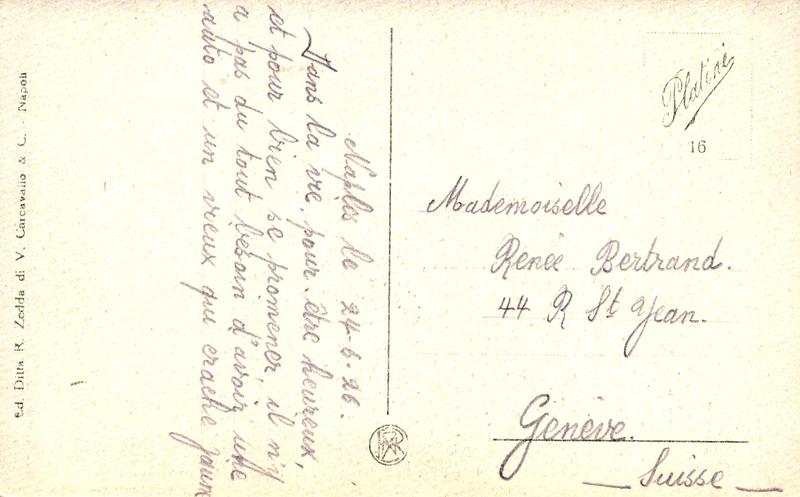 Naples le 24-6-26.
Dans la vie, pour être heureux,
et pour bien se promener, il n'y
a pas du tout besoin d'avoir une
auto et un vieux qui crache jaune
Platine
16
Mademoiselle
Renée Bertrand.
44 R St Jean.
Genève.
Suisse
Ed. Ditta R. Zedda di V. Carcavallo & C. - Napoli